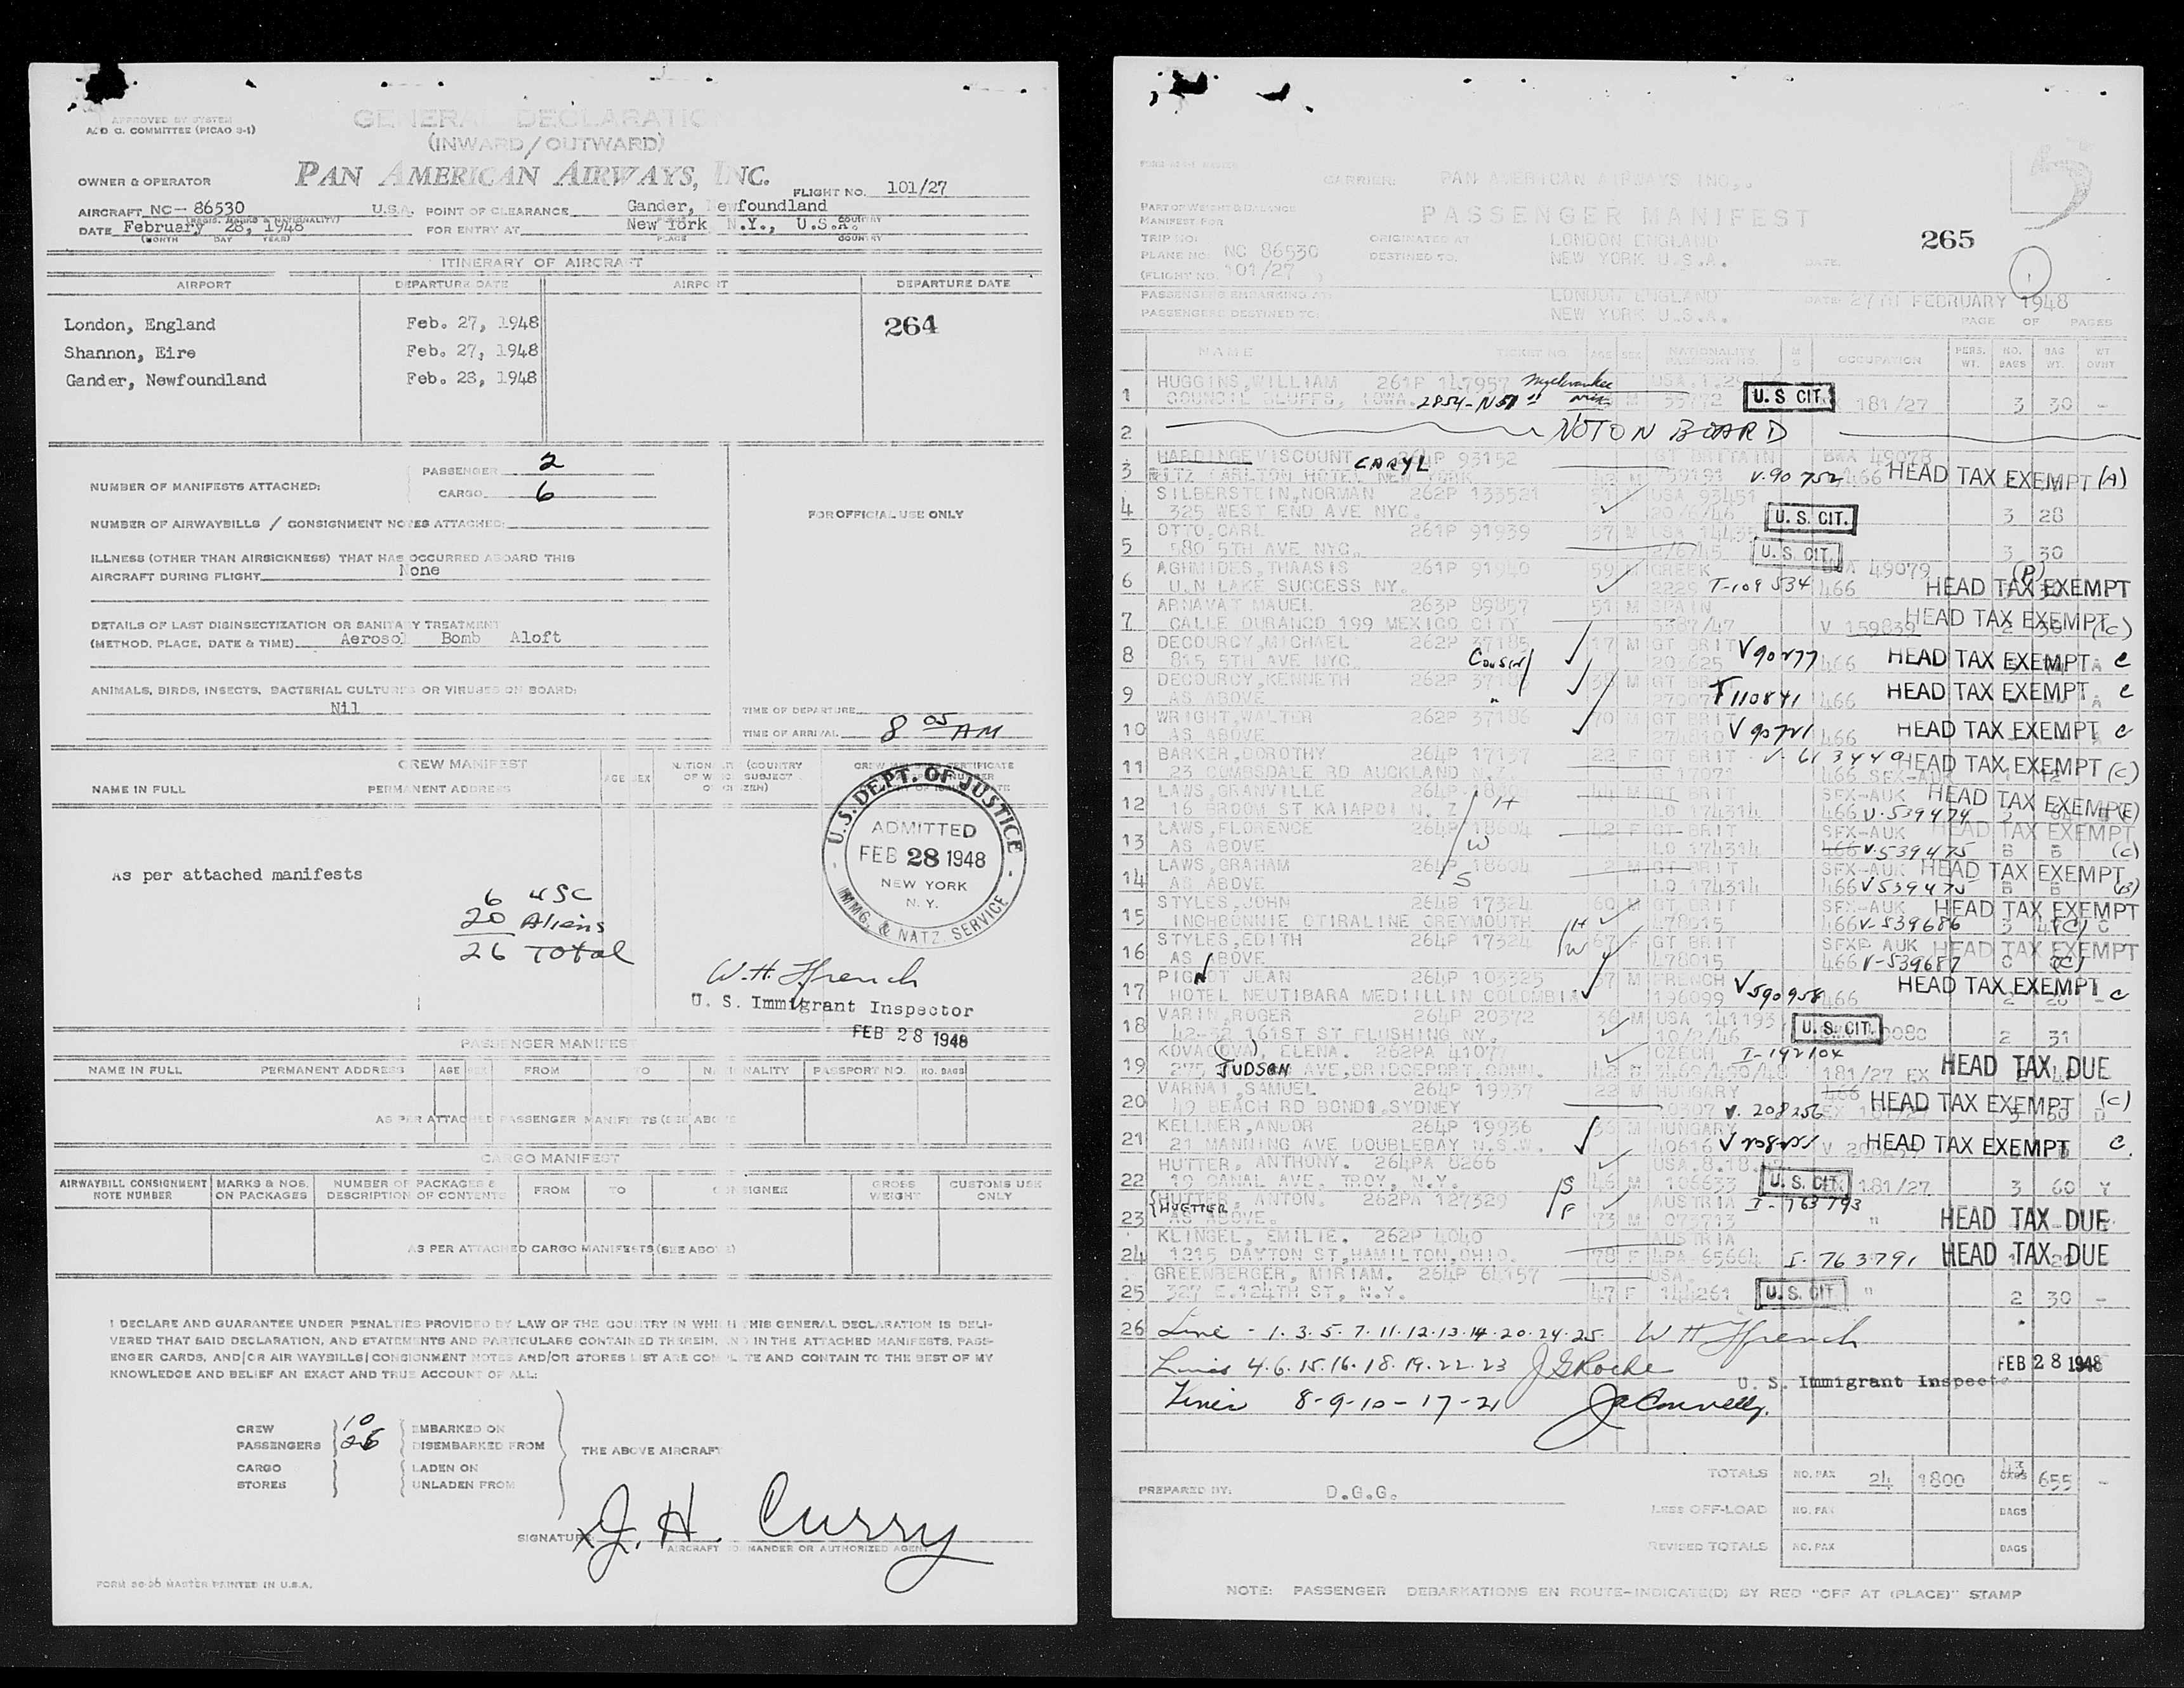 APPROVED BY SYSTEM
AND O. COMMITTEE (PICAO 3-1)
GENERAL DECLARATION
(INWARD/OUTWARD)
PAN AMERICAN AIRWAYS, INC.
OWNER & OPERATOR
FLIGHT NO. 101/27
AIRCRAFT NC- 86530 U.S.A. POINT OF CLEARANCE Gander, Newfoundland
(REGIS. MARKS & NATIONALITY) PLACE COUNTRY
DATE February 28, 1948 FOR ENTRY AT New York N.Y., U.S.A.
(MONTH DAY YEAR) PLACE COUNTRY
ITINERARY OF AIRCRAFT
AIRPORT DEPARTURE DATE AIRPORT DEPARTURE DATE
London, England Feb. 27, 1948 264
Shannon, Eire Feb. 27, 1948
Gander, Newfoundland Feb. 28, 1948
NUMBER OF MANIFESTS ATTACHED: PASSENGER 2
CARGO 6
NUMBER OF AIRWAYBILLS / CONSIGNMENT NOTES ATTACHED:
FOR OFFICIAL USE ONLY
ILLNESS (OTHER THAN AIRSICKNESS) THAT HAS OCCURRED ABOARD THIS
AIRCRAFT DURING FLIGHT None
DETAILS OF LAST DISINSECTIZATION OR SANITARY TREATMENT
(METHOD, PLACE, DATE & TIME) Aerosol Bomb Aloft
ANIMALS, BIRDS, INSECTS, BACTERIAL CULTURES OR VIRUSES ON BOARD:
Nil
TIME OF DEPARTURE
TIME OF ARRIVAL 8 05 AM
CREW MANIFEST
NAME IN FULL PERMANENT ADDRESS AGE SEX
U.S. DEPT. OF JUSTICE
ADMITTED
FEB 28 1948
NEW YORK
N. Y.
IMMG. & NATZ. SERVICE
As per attached manifests
6 USC
20 Aliens
26 Total
W.H. Ffrench
U. S. Immigrant Inspector
FEB 28 1948
PASSENGER MANIFEST
NAME IN FULL PERMANENT ADDRESS AGE SEX FROM TO NATIONALITY PASSPORT NO. NO. BAGS
AS PER ATTACHED PASSENGER MANIFESTS (SEE ABOVE)
CARGO MANIFEST
AIRWAYBILL CONSIGNMENT NOTE NUMBER MARKS & NOS. ON PACKAGES NUMBER OF PACKAGES & DESCRIPTION OF CONTENTS FROM TO CONSIGNEE GROSS WEIGHT CUSTOMS USE ONLY
AS PER ATTACHED CARGO MANIFESTS (SEE ABOVE)
I DECLARE AND GUARANTEE UNDER PENALTIES PROVIDED BY LAW OF THE COUNTRY IN WHICH THIS GENERAL DECLARATION IS DELI-
VERED THAT SAID DECLARATION, AND STATEMENTS AND PARTICULARS CONTAINED THEREIN, AND IN THE ATTACHED MANIFESTS, PASS-
ENGER CARDS, AND/OR AIR WAYBILLS/CONSIGNMENT NOTES AND/OR STORES LIST ARE COMPLETE AND CONTAIN TO THE BEST OF MY
KNOWLEDGE AND BELIEF AN EXACT AND TRUE ACCOUNT OF ALL:
CREW 10 EMBARKED ON
PASSENGERS 26 DISEMBARKED FROM THE ABOVE AIRCRAFT
CARGO LADEN ON
STORES UNLADEN FROM
SIGNATURE J. H. Curry
AIRCRAFT COMMANDER OR AUTHORIZED AGENT
FORM 20-36 MASTER PRINTED IN U.S.A.
CARRIER: PAN AMERICAN AIRWAYS INC.,
PART OF WEIGHT & BALANCE
MANIFEST FOR
PASSENGER MANIFEST
265
TRIP NO. ORIGINATED AT LONDON ENGLAND
PLANE NO. NC 86530 DESTINED TO. NEW YORK U.S.A. DATE.
(FLIGHT NO. 101/27 )
PASSENGERS EMBARKING AT: LONDON ENGLAND DATE: 27TH FEBRUARY 1948
PASSENGERS DESTINED TO: NEW YORK U.S.A. PAGE 1 OF PAGES
NAME TICKET NO. AGE SEX NATIONALITY PASSPORT NO. M S OCCUPATION PERS. WT. NO. BAGS BAG WT. WT OVHT
1 HUGGINS, WILLIAM 261P 147957
COUNCIL BLUFFS, IOWA. M U. S CIT. 181/27 3 30 -
2 NOT ON BOARD
3 HARDINGE VISCOUNT CARYL 264P 93152 GT BRITAIN BWA 49078
RITZ CARLTON HOTEL NEW YORK M V.90752 466 HEAD TAX EXEMPT (A)
4 SILBERSTEIN, NORMAN 262P 133521 51 USA 93451
325 WEST END AVE NYC. 20/6/46 U. S. CIT. 3 28
5 OTTO, CARL 261P 91939 37 M USA
580 5TH AVE NYC. 2/6/45 U. S. CIT. 3 30
6 AGHNIDES, THAASIS 261P 91940 59 M GREEK 49079 (P)
U.N LAKE SUCCESS NY. 2229 T-109534 466 HEAD TAX EXEMPT
7 ARNAVAT MAUEL 263P 89857 51 M SPAIN
CALLE DURANGO 199 MEXICO CITY 5387/47 V 159839 HEAD TAX EXEMPT (C)
8 DECOURCY, MICHAEL 262P 37185 17 M GT BRIT
815 5TH AVE NYC. Cousin 201625 V90277 466 HEAD TAX EXEMPT C
9 DECOURCY, KENNETH 262P 37186 38 M GT BRIT
AS ABOVE " T110841 466 HEAD TAX EXEMPT C
10 WRIGHT, WALTER 262P 37186 70 M GT BRIT
AS ABOVE 466 HEAD TAX EXEMPT C
11 BARKER, DOROTHY 264P 17137 22 F GT BRIT V-613440
23 CUMBSDALE RD AUCKLAND N.Z. 466 SFX-AUK HEAD TAX EXEMPT (C)
12 LAWS, GRANVILLE 264P 18604 44 M GT BRIT SFX-AUK
16 BROOM ST KAIAPOI N. Z H LO 174314 466 V.539474 HEAD TAX EXEMPT
13 LAWS, FLORENCE 264P 18604 42 F GT BRIT SFX-AUK HEAD TAX EXEMPT
AS ABOVE W LO 174314 466 V.539475 B B (C)
14 LAWS, GRAHAM 264P 18604 M GT BRIT SFX-AUK HEAD TAX EXEMPT
AS ABOVE S LO 174314 466 V539475 B B
15 STYLES, JOHN 264P 17324 60 M GT BRIT SFX-AUK HEAD TAX EXEMPT
INCHBONNIE OTIRALINE GREYMOUTH H 478015 466 V-539686 (C)
16 STYLES, EDITH 264P 17324 67 F GT BRIT SFXP AUK HEAD TAX EXEMPT
AS ABOVE W 478015 466 V-539687 C (C)
17 PIGNOT JEAN 264P 103325 37 M FRENCH
HOTEL NEUTIBARA MEDIILLIN COLOMBIA 196099 V590958 466 HEAD TAX EXEMPT C
18 VARIN, ROGER 264P 20372 36 M USA 141193
42-32 161ST ST FLUSHING NY. 10/2/46 U. S. CIT. 2 31
19 KOVAC(OVA), ELENA. 262PA 41077 CZECH I-192104
275 JUDSON AVE, BRIDGEPORT. CONN. 181/27 EX HEAD TAX DUE
20 VARNAI, SAMUEL 264P 19937 22 M HUNGARY 466
49 BEACH RD BONDI, SYDNEY V. 208256 HEAD TAX EXEMPT (C)
21 KELLNER, ANDOR 264P 19936 36 M HUNGARY
21 MANNING AVE DOUBLEBAY N.S.W. 40616 HEAD TAX EXEMPT C.
22 HUTTER, ANTHONY. 264PA 8266 USA.
19 CANAL AVE. TROY, N.Y. S 46 M 106633 U. S. CIT. 181/27 3 60 Y
23 HUTTER, ANTON. 262PA 127329 AUSTRIA I-763793
HUETTER AS ABOVE. F 73 M 073713 " HEAD TAX DUE
24 KLINGEL, EMILIE. 262P 4040 AUSTRIA
1215 DAYTON ST, HAMILTON, OHIO. 78 F 4PA 65664 I-763791 HEAD TAX DUE
25 GREENBERGER, MIRIAM. 264P 64157 USA.
327 E. 124TH ST, N.Y. 47 F 144261 U. S. CIT " 2 30 -
26 Line - 1. 3. 5. 7. 11. 12. 13. 14. 20. 24. 25. W H Ffrench
Lines 4. 6. 15. 16. 18. 19. 22. 23 J G Roche FEB 28 1948
U. S. Immigrant Inspector
Lines 8-9-10-17-21 Connelly
TOTALS NO. PAX 24 1800 43 BAGS 655 -
PREPARED BY: D.G.G.
LESS OFF-LOAD NO. PAX BAGS
REVISED TOTALS NO. PAX BAGS
NOTE: PASSENGER DEBARKATIONS EN ROUTE-INDICATE(D) BY RED "OFF AT (PLACE)" STAMP